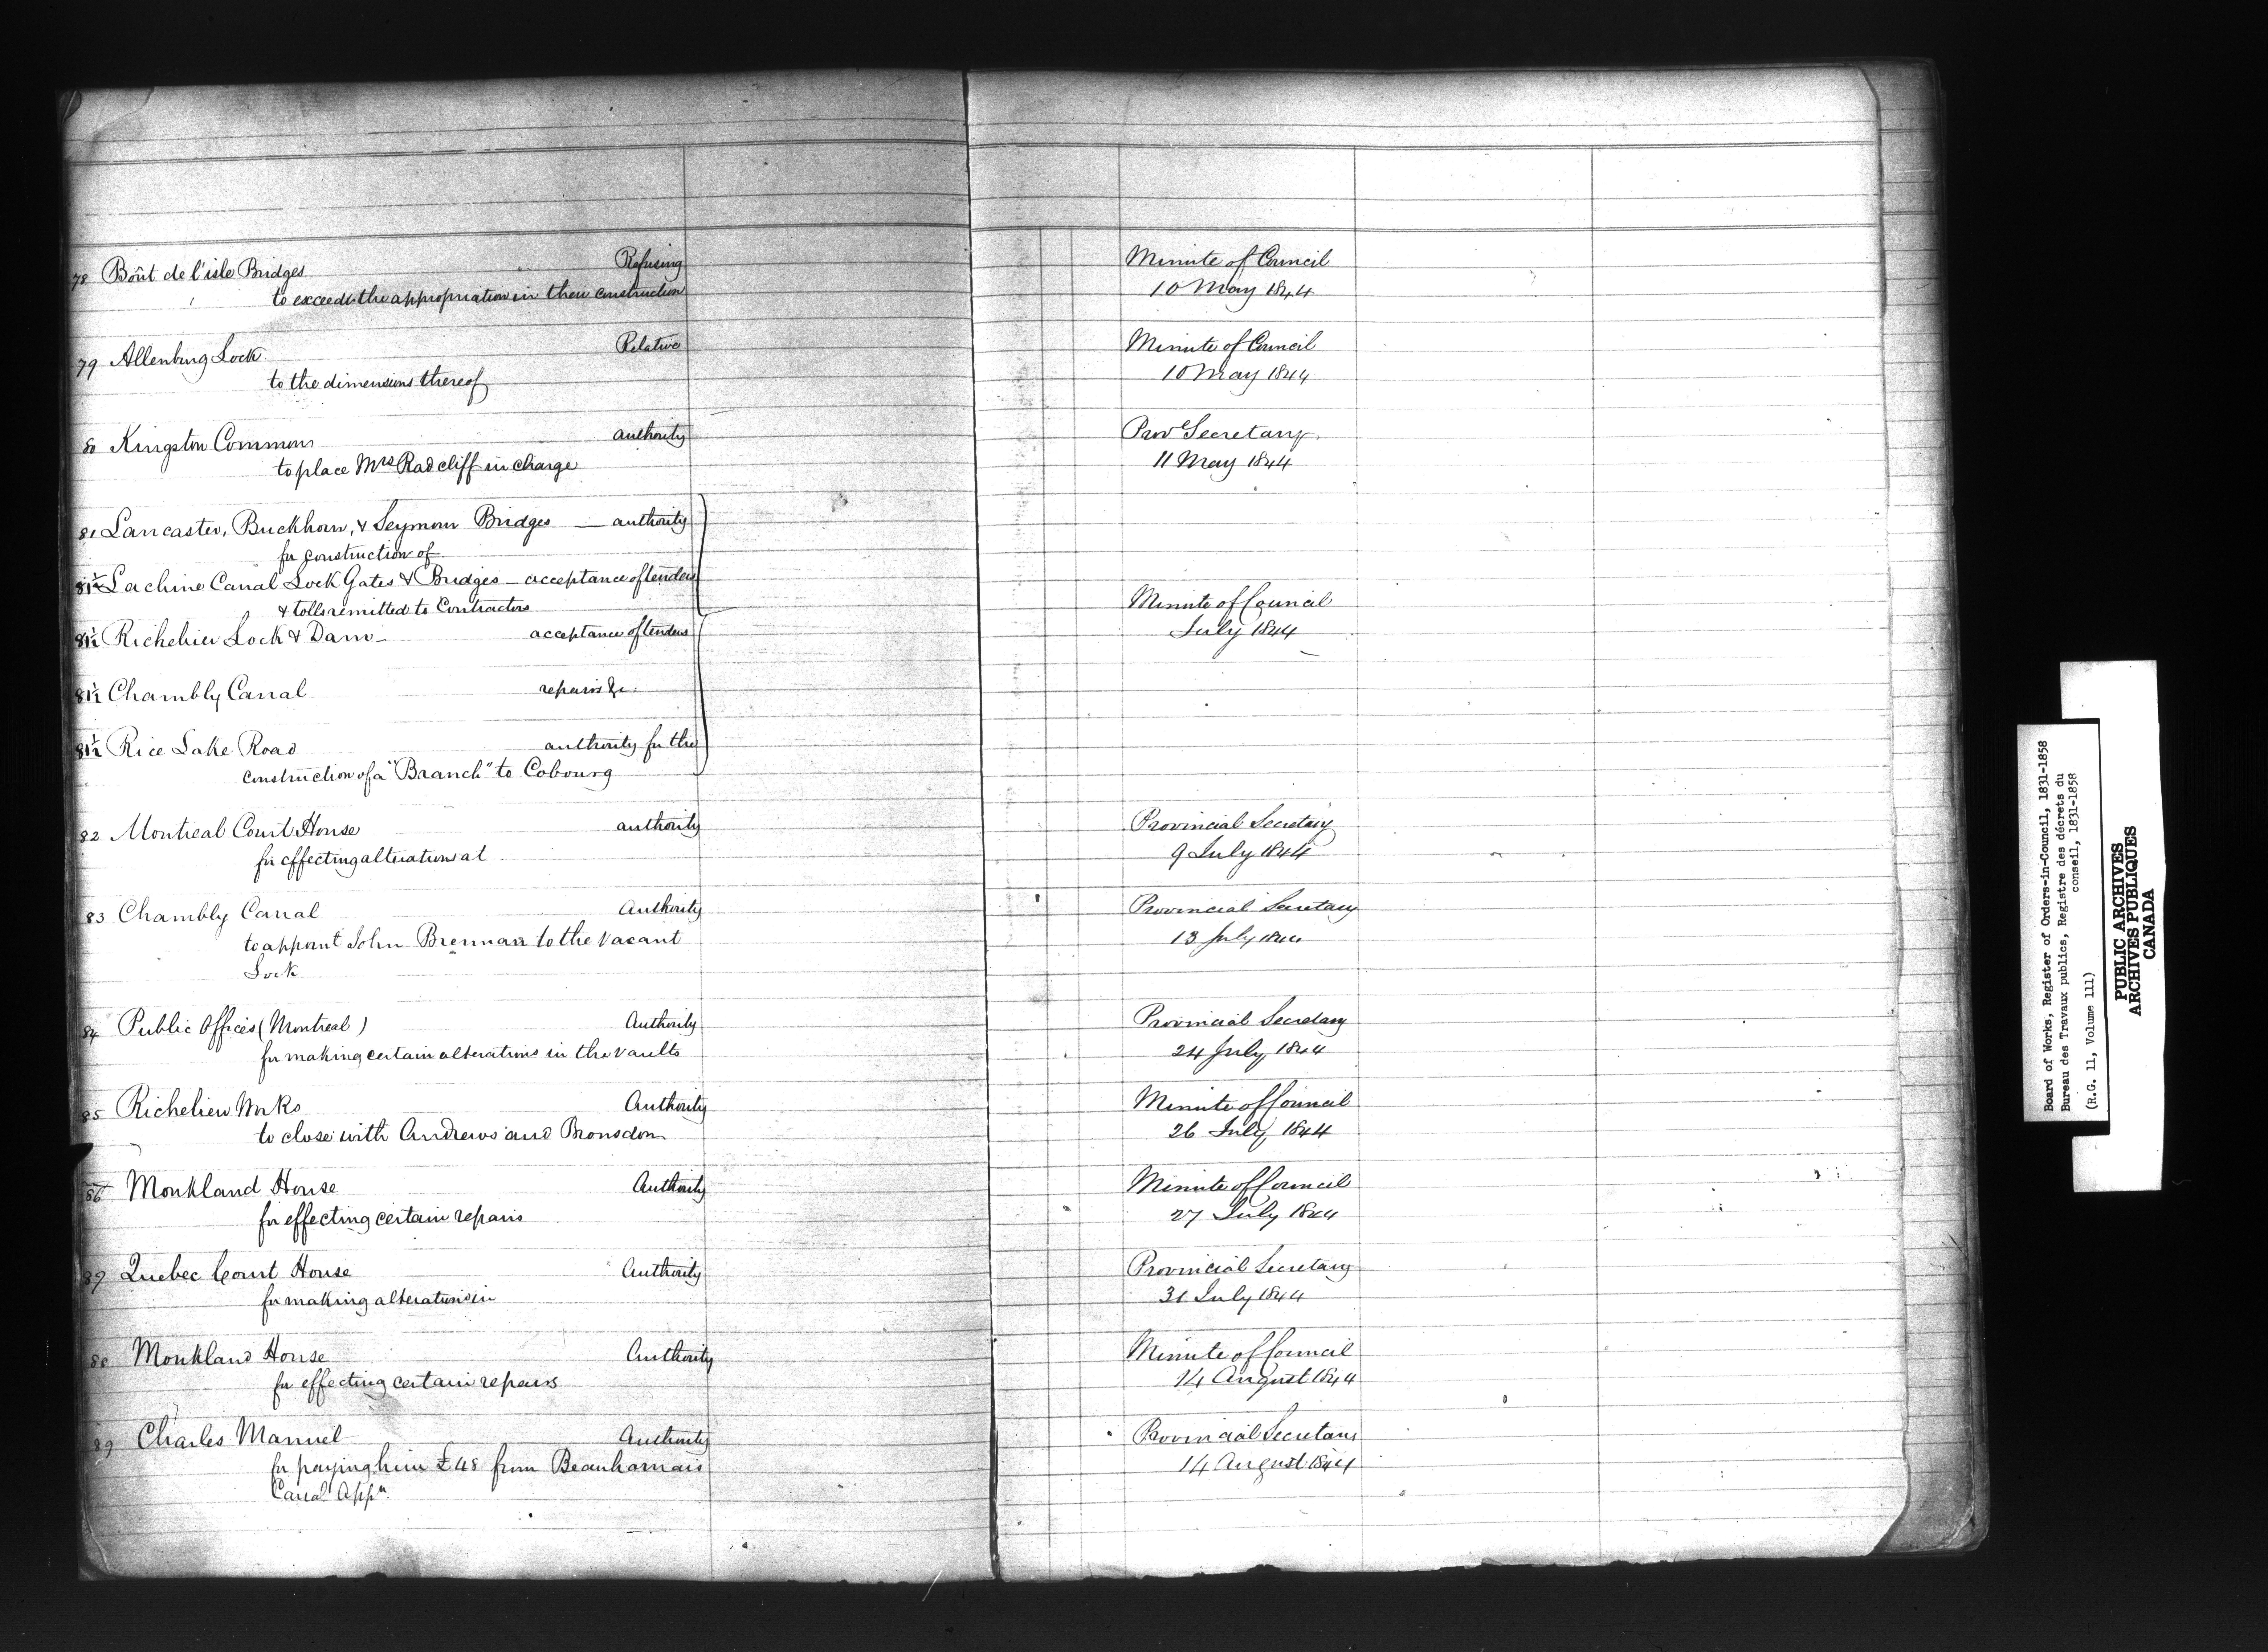 78 Boût de l'isle Bridges Refusing
to exceed the appropriation in their construction
Minute of Council
10 May 1844
79 Allenburg Lock Relative
to the dimensions thereof
Minute of Council
10 May 1844
80 Kingston Commons authority
to place Mrs Radcliff in charge
Provl Secretary
11 May 1844
81 Lancaster, Buckhorn, & Seymour Bridges — authority
for construction of
81½ Lachine Canal Lock Gates & Bridges — acceptance of tenders
& tolls remitted to Contractors
81½ Richelieu Lock & Dam — acceptance of tenders
81½ Chambly Canal repairs &c.
81½ Rice Lake Road authority for the
construction of a "Branch" to Cobourg
Minute of Council
July 1844
82 Montreal Court House authority
for effecting alterations at
Provincial Secretary
9 July 1844
83 Chambly Canal Authority
to appoint John Brennan to the vacant
Lock
Provincial Secretary
13 July 1844
84 Public Offices (Montreal) Authority
for making certain alterations in the vaults
Provincial Secretary
24 July 1844
85 Richelieu Works Authority
to close with Andrews and Bronsdon
Minute of Council
26 July 1844
86 Monkland House Authority
for effecting certain repairs
Minute of Council
27 July 1844
89 Quebec Court House Authority
for making alterations in
Provincial Secretary
31 July 1844
88 Monkland House Authority
for effecting certain repairs
Minute of Council
14 August 1844
89 Charles Manuel Authority
for paying him £48 from Beauharnais
Canal Appn.
Provincial Secretary
14 August 1844
Board of Works, Register of Orders-in-Council, 1831-1858
Bureau des Travaux publics, Registre des décrets du
conseil, 1831-1858
(R.G. 11, Volume 111)
PUBLIC ARCHIVES
ARCHIVES PUBLIQUES
CANADA